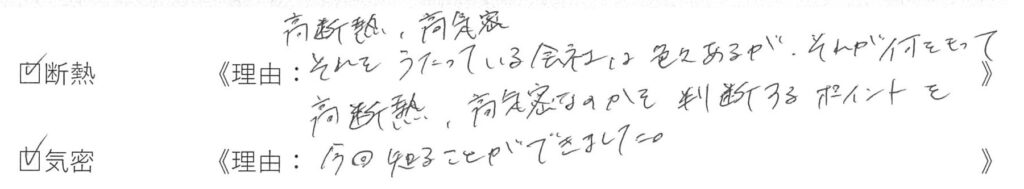 高断熱、高気密
☑断熱 《理由：それをうたっている会社は色々あるが、それが何をもって》
高断熱、高気密なのかを判断するポイントを
☑気密 《理由：今回知ることができました。》